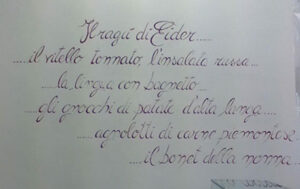 Il ragù di Eider....
.....il vitello tonnato, l'insalata russa....
....la lingua con bagnetto....
...gli gnocchi di patate d'alta langa.....
.....agnolotti di carne piemontese..
...il bonet della nonna....